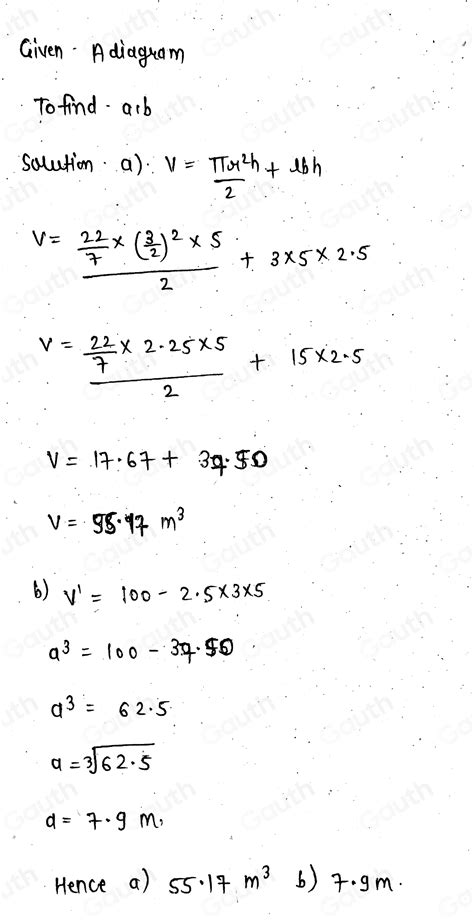 Given - A diagram
To find - a, b
Solution - a). V = πr²h/2 + lbh
V = (22/7 × (3/2)² × 5)/2 + 3×5×2.5
V = (22/7 × 2.25×5)/2 + 15×2.5
V = 17.67 + 37.50
V = 55.17 m³
b) V' = 100 - 2.5×3×5
a³ = 100 - 37.50
a³ = 62.5
a = ∛62.5
a = 7.9 m,
Hence a) 55.17 m³ b) 7.9m.